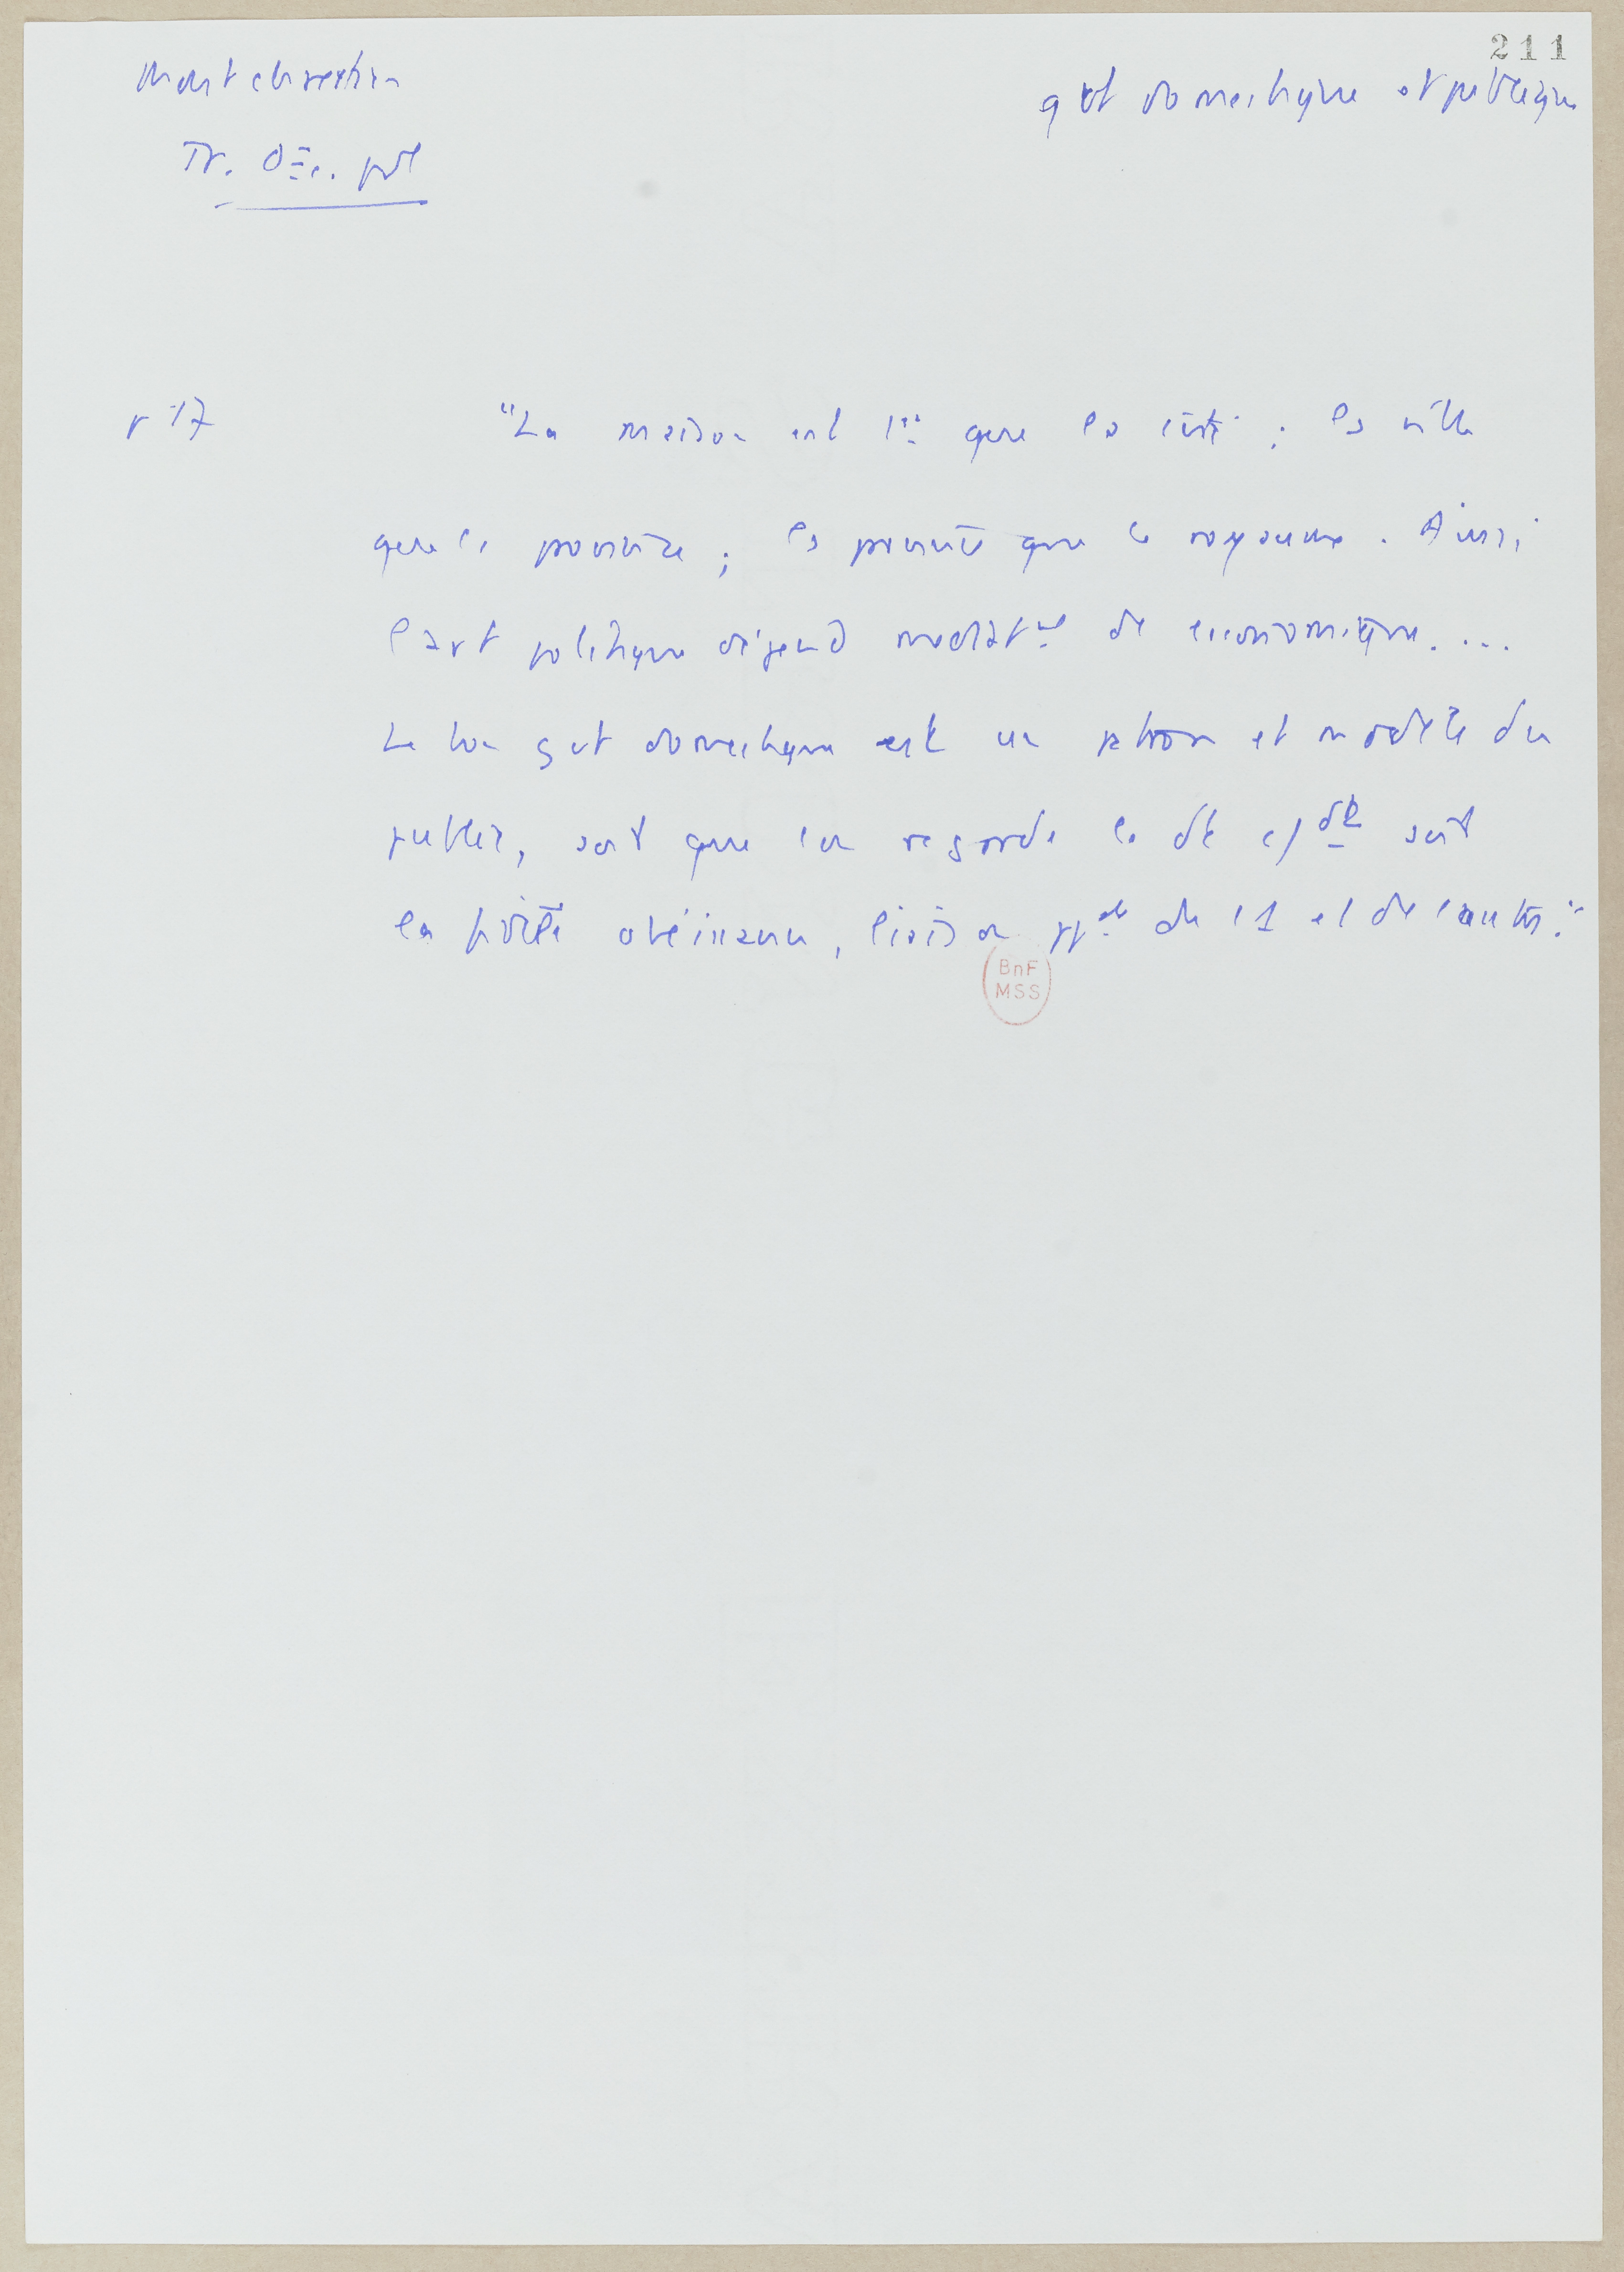 211
Montchrestien
gvt domestique et publique
Tr. Oec. pol
p 17
"La maison est 1ère que la cité ; la ville
que la province ; la province que le royaume. Ainsi
l'art politique dépend médiatmt de économique. ...
Le bon gvt domestique est un patron et modèle du
public, soit que l'on regarde le dt cdt soit
la fidèle obéissance, liaison ppale de l'1 et de l'autre."
BnF
MSS